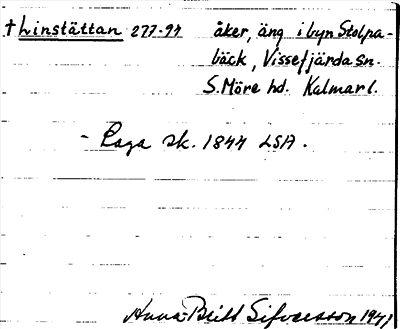 † Linstättan 277-94 åker, äng i byn Stolpa-
bäck, Vissefjärda sn.
S. Möre hd. Kalmar l.
- Laga sk. 1844 LSA.
Anna-Britt Sifversson 1941